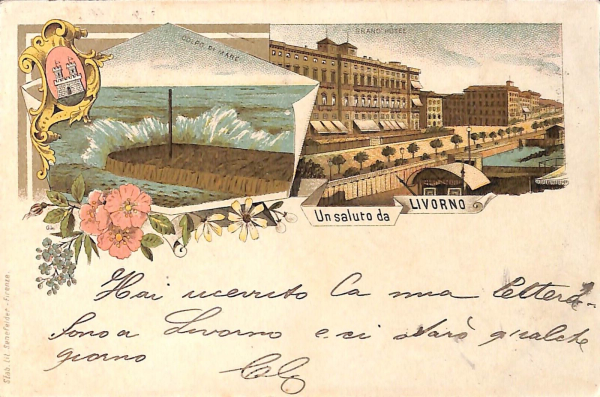 COLPO DI MARE
GRAND HOTEL
Un saluto da LIVORNO
Hai ricevuto la mia lettera
Sono a Livorno e ci starò qualche
giorno
Stab. lit. Senefelder - Firenze.